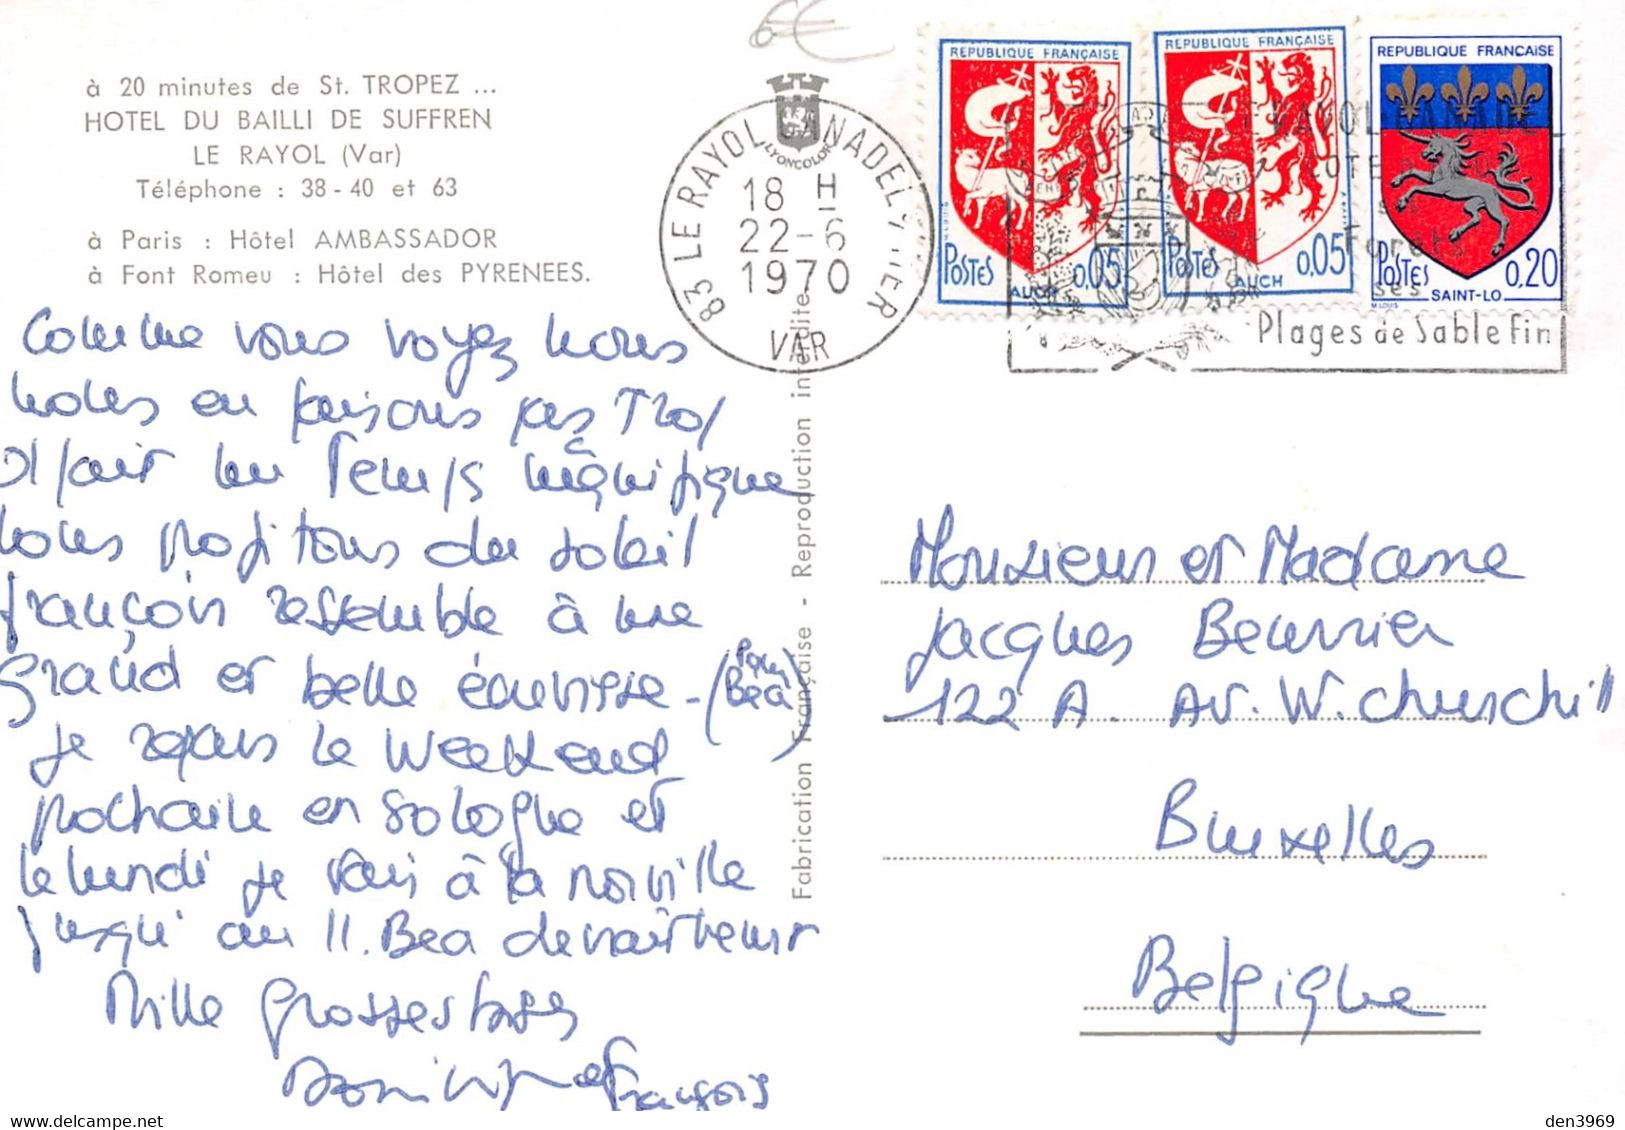 à 20 minutes de St. TROPEZ ...
HOTEL DU BAILLI DE SUFFREN
LE RAYOL (Var)
Téléphone : 38 - 40 et 63
à Paris : Hôtel AMBASSADOR
à Font Romeu : Hôtel des PYRENEES.
Comme vous voyez nous
nous en faisons pas Trop
Il fait un Temps magnifique
nous profitons du soleil
françois ressemble à une
grand et belle écrevisse - (Pour Bea)
je repars le Weekend
prochaine en Sologne et
le lundi je vais à la norville
jusqu' au 11. Bea
Mille grosses bises
Dominique et François
6€
LYONCOLOR
83 LE RAYOL CANADEL S/MER
18 H
22-6
1970
VAR
REPUBLIQUE FRANÇAISE
POSTES 0,05
AUCH
REPUBLIQUE FRANÇAISE
POSTES 0,05
AUCH
REPUBLIQUE FRANÇAISE
POSTES 0,20
SAINT-LO
M. LOUIS
RAYOL CANADEL
Forêts
Plages de Sable Fin
Fabrication Française - Reproduction interdite
Monsieur et Madame
Jacques Beurrier
122 A. Av. W. Churchill
Bruxelles
Belgique
den3969